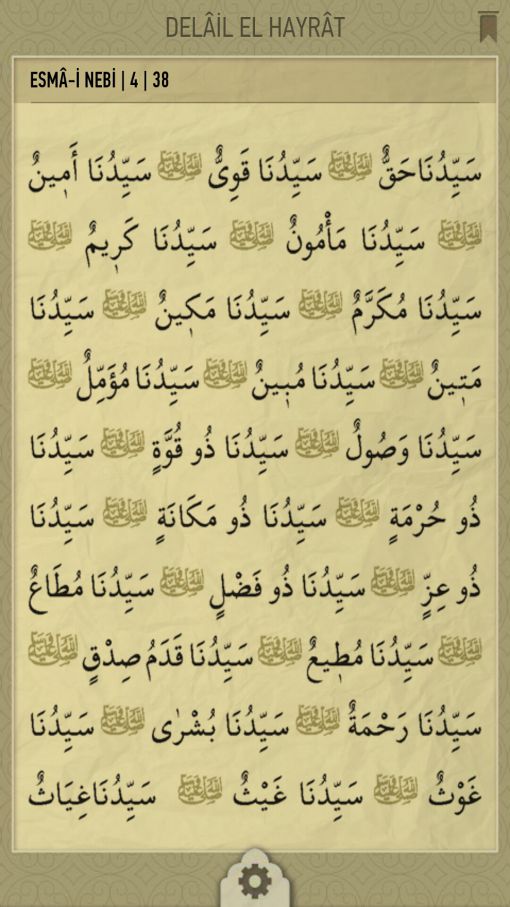 DELÂİL EL HAYRÂT
ESMÂ-İ NEBİ | 4 | 38
سَيِّدُنَاحَقٌّ ﷺ سَيِّدُنَا قَوِىٌّ ﷺ سَيِّدُنَا أَمِينٌ
ﷺ سَيِّدُنَا مَأْمُونٌ ﷺ سَيِّدُنَا كَرِيمٌ ﷺ
سَيِّدُنَا مُكَرَّمٌ ﷺ سَيِّدُنَا مَكِينٌ ﷺ سَيِّدُنَا
مَتِينٌ ﷺ سَيِّدُنَا مُبِينٌ ﷺ سَيِّدُنَا مُؤَمِّلٌ ﷺ
سَيِّدُنَا وَصُولٌ ﷺ سَيِّدُنَا ذُو قُوَّةٍ ﷺ سَيِّدُنَا
ذُو حُرْمَةٍ ﷺ سَيِّدُنَا ذُو مَكَانَةٍ ﷺ سَيِّدُنَا
ذُو عِزٍّ ﷺ سَيِّدُنَا ذُو فَضْلٍ ﷺ سَيِّدُنَا مُطَاعٌ
ﷺ سَيِّدُنَا مُطِيعٌ ﷺ سَيِّدُنَا قَدَمُ صِدْقٍ ﷺ
سَيِّدُنَا رَحْمَةٌ ﷺ سَيِّدُنَا بُشْرٰى ﷺ سَيِّدُنَا
غَوْثٌ ﷺ سَيِّدُنَا غَيْثٌ ﷺ سَيِّدُنَاغِيَاثٌ